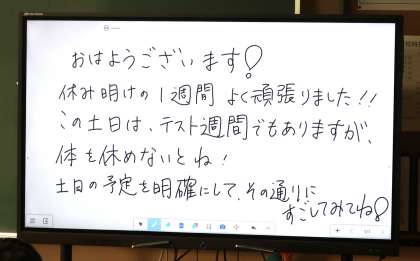 おはようございます!
休み明けの1週間 よく頑張りました!!
この土日は、テスト週間でもありますが、
体を休めないとね!
土日の予定を明確にして、その通りに
すごしてみてね!